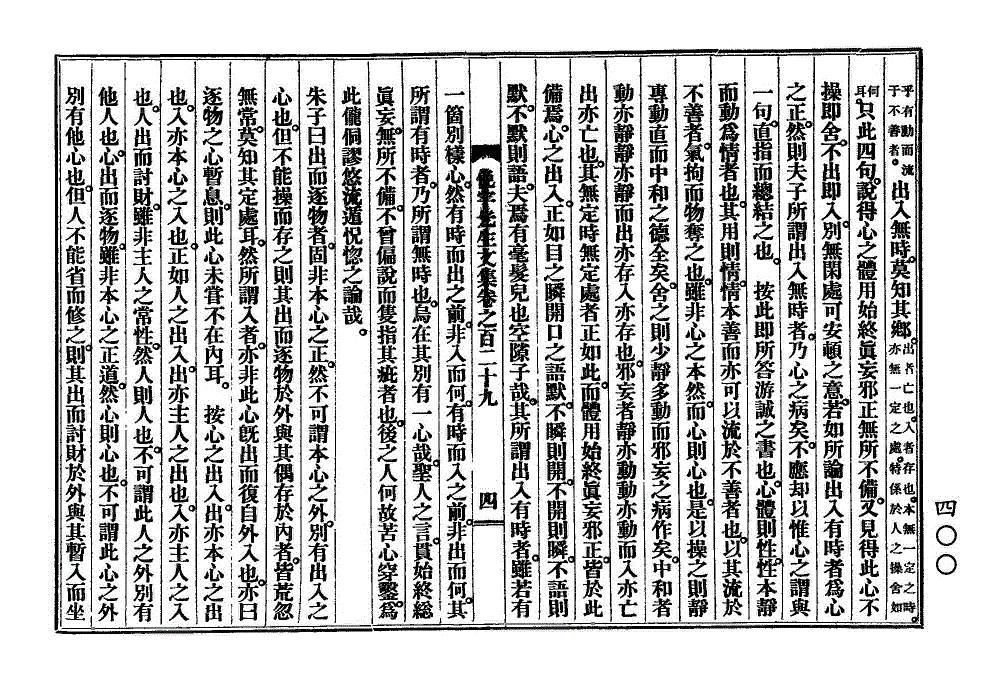 乎有動而流于不善者。出入無時。莫知其鄕。出者亡也。入者存也。本無一定之時。亦無一定之處。特係於人之操舍如
何耳。只此四句。說得心之體用始終眞妄邪正無所不備。又見得此心不
操卽舍。不出卽入。別無閑處可安頓之意。若如所論出入有時者。爲心
之正。然則夫子所謂出入無時者。乃心之病矣。不應却以惟心之謂與
一句。直指而總結之也。 按此卽所答游誠之書也。心體則性。性本靜
而動爲情者也。其用則情。情本善而亦可以流於不善者也。以其流於
不善者。氣拘而物奪之也。雖非心之本然。而心則心也。是以操之則靜
專動直而中和之德全矣。舍之則少靜多動而邪妄之病作矣。中和者
動亦靜靜亦靜而出亦存入亦存也。邪妄者靜亦動動亦動而入亦亡
出亦亡也。其無定時無定處者正如此。而體用始終眞妄邪正。皆於此
備焉。心之出入。正如目之瞬開口之語默。不瞬則開。不開則瞬。不語則
默。不默則語。夫焉有毫髮兒也空隙子哉。其所謂出入有時者。雖若有
俛宇先生文集卷之百二十九 四
一箇別樣心。然有時而出之前。非入而何。有時而入之前。非出而何。其
所謂有時者。乃所謂無時也。烏在其別有一心哉。聖人之言。貫始終緫
眞妄。無所不備。不曾偏說而隻指其疵者也。後之人何故苦心穿鑿。爲
此儱侗謬悠流遁怳惚之論哉。
朱子曰出而逐物者。固非本心之正。然不可謂本心之外。別有出入之
心也。但不能操而存之則其出而逐物於外與其偶存於內者。皆荒忽
無常。莫知其定處耳。然所謂入者。亦非此心旣出而復自外入也。亦曰
逐物之心暫息。則此心未嘗不在內耳。 按心之出入。出亦本心之出
也。入亦本心之入也。正如人之出入。出亦主人之出也。入亦主人之入
也。人出而討財。雖非主人之常性。然人則人也。不可謂此人之外別有
他人也。心出而逐物。雖非本心之正道。然心則心也。不可謂此心之外
別有他心也。但人不能省而修之。則其出而討財於外與其暫入而坐
四〇〇